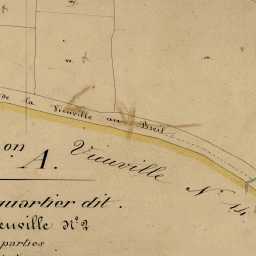 de la Vieuville au Breil
on
A.
Vieuville N° 14
quartier dit.
euville N° 2
parties